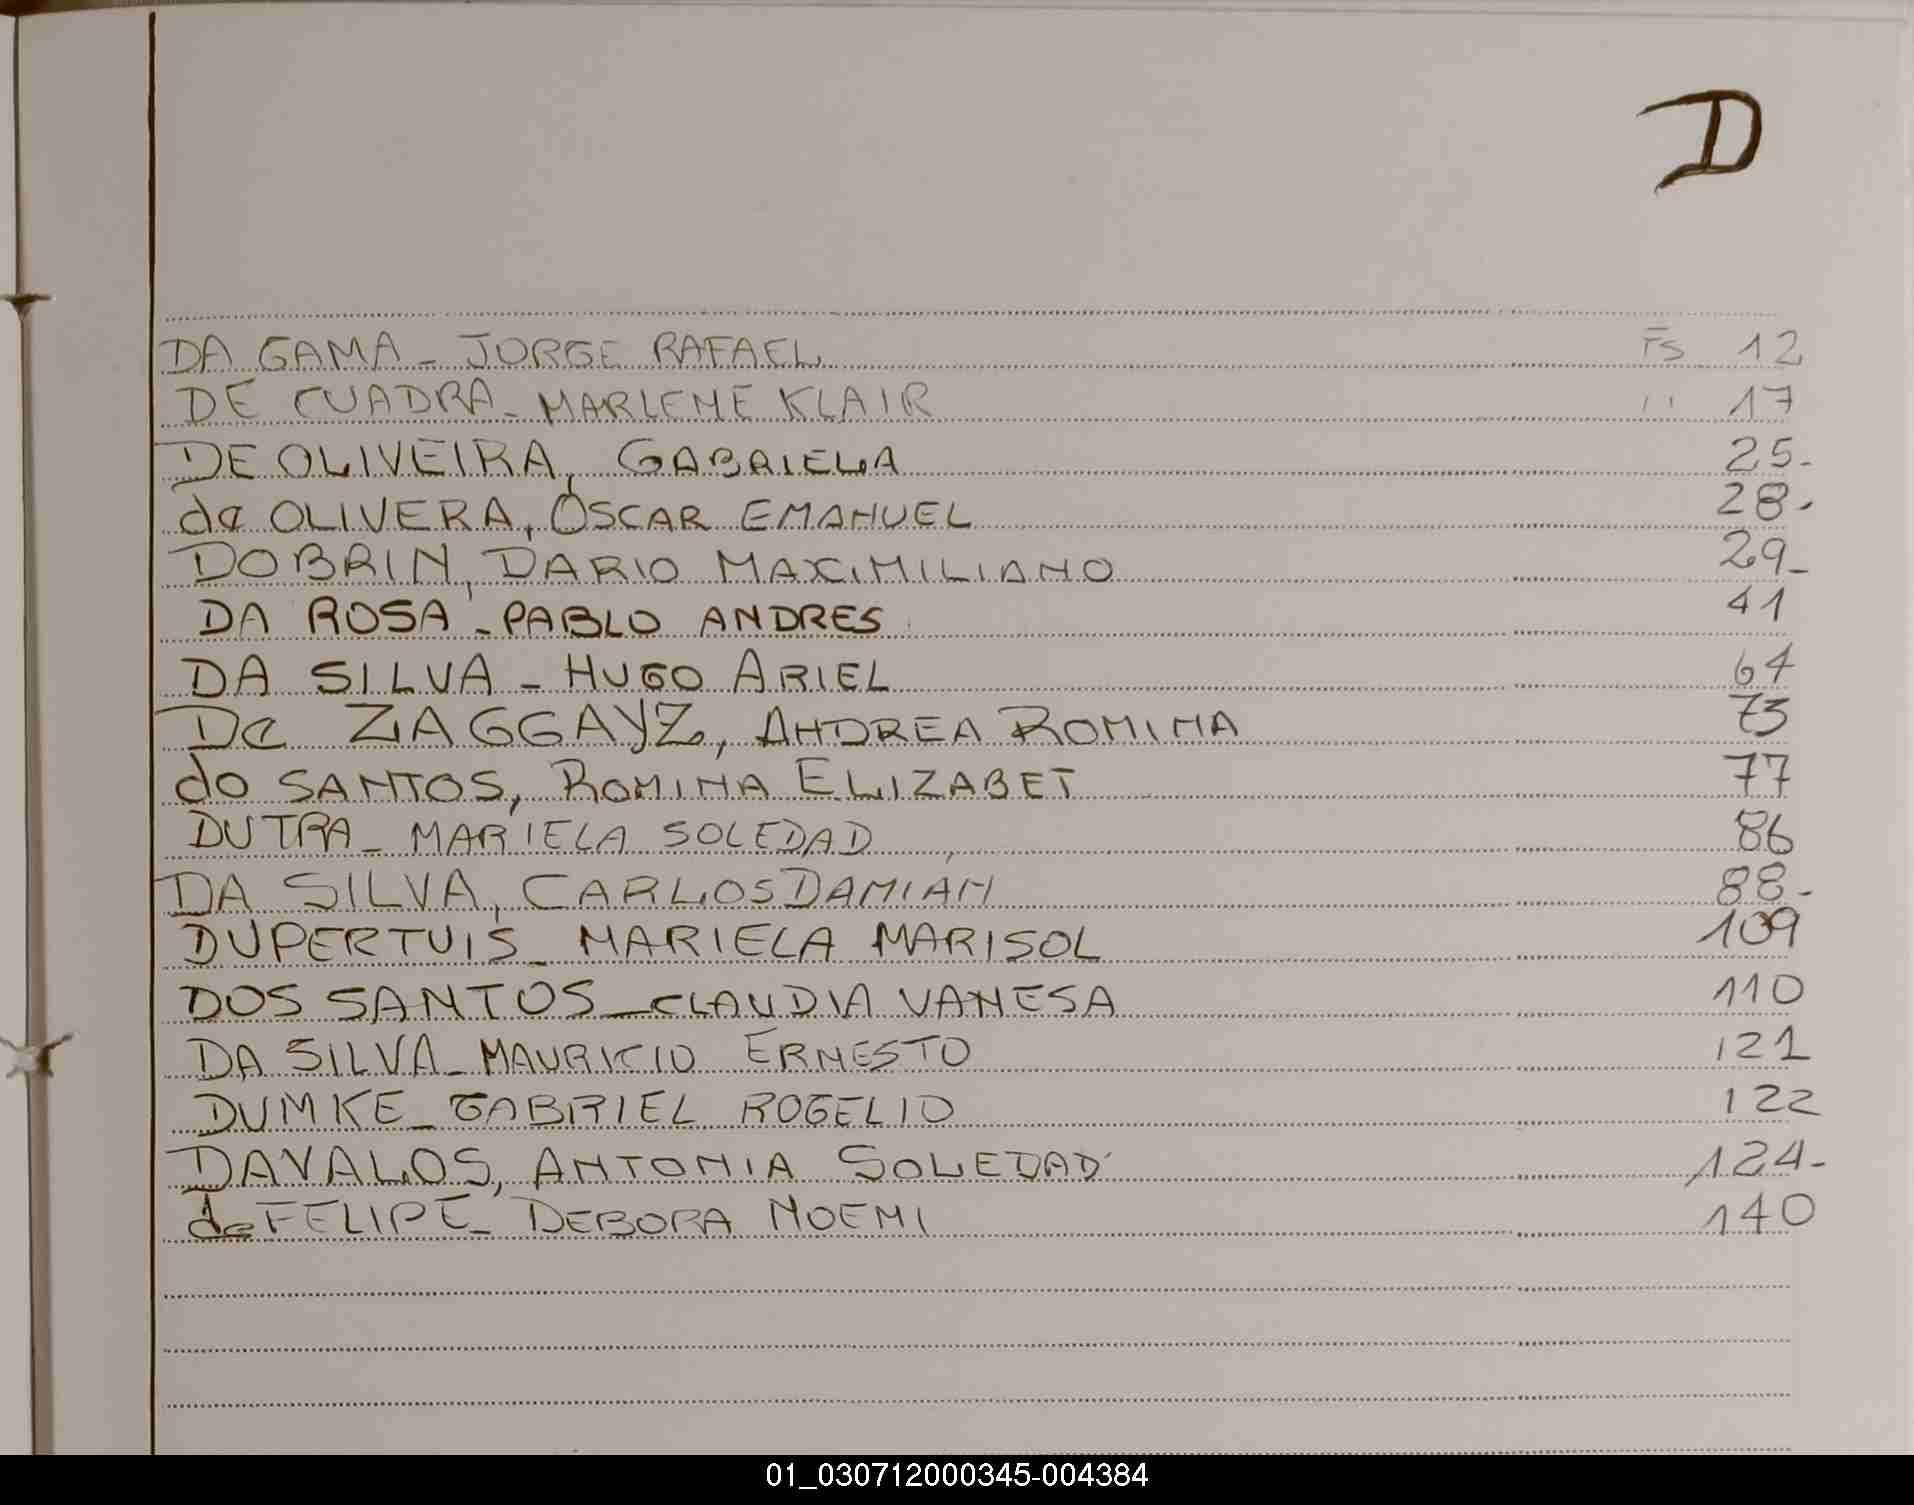 D
DA GAMA - JORGE RAFAEL Fs 12
DE CUADRA - MARLENE KLAIR " 17
DE OLIVEIRA, GABRIELA 25-
de OLIVERA, OSCAR EMANUEL 28-
DOBRIN, DARIO MAXIMILIANO 29-
DA ROSA - PABLO ANDRES 41
DA SILVA - HUGO ARIEL 64
De ZAGGAYZ, ANDREA ROMINA 73
do SANTOS, ROMINA ELIZABET 77
DUTRA - MARIELA SOLEDAD 86
DA SILVA, CARLOS DAMIAN 88-
DUPERTUIS - MARIELA MARISOL 109
DOS SANTOS - CLAUDIA VANESA 110
DA SILVA - MAURICIO ERNESTO 121
DUMKE - GABRIEL ROGELIO 122
DAVALOS, ANTONIA SOLEDAD 124-
de FELIPE - DEBORA NOEMI 140
01_030712000345-004384